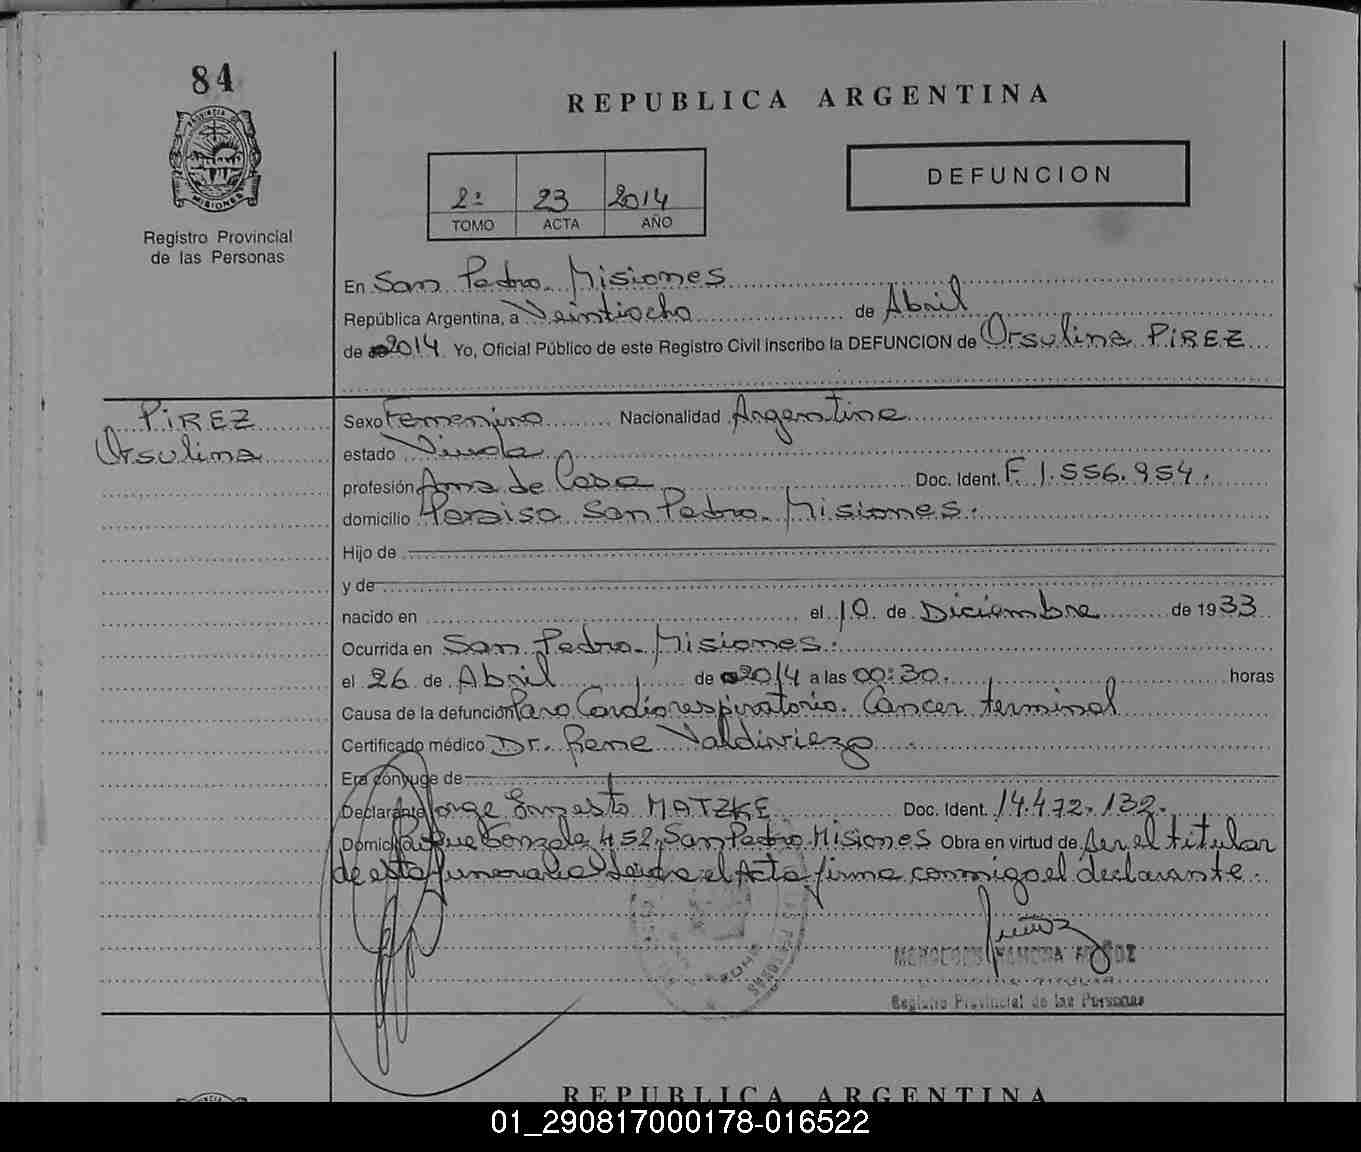 84
PROVINCIA DE
MISIONES
Registro Provincial
de las Personas
REPUBLICA ARGENTINA
2º 23 2014
TOMO ACTA AÑO
DEFUNCION
En San Pedro. Misiones
República Argentina, a Veintiocho de Abril
de 2014 Yo, Oficial Público de este Registro Civil inscribo la DEFUNCION de Orsulina PIREZ
PIREZ
Orsulina
Sexo Femenino Nacionalidad Argentina
estado Viuda
profesión Ama de Casa Doc. Ident. F. 1.556.954.
domicilio Paraiso San Pedro. Misiones.
Hijo de
y de
nacido en el 10 de Diciembre de 1933
Ocurrida en San Pedro. Misiones.
el 26 de Abril de 2014 a las 00:30. horas
Causa de la defunción Paro Cardiorespiratorio. Cancer terminal
Certificado médico Dr. Rene Valdiviezo
Era cónyuge de
Declarante Jorge Ernesto MATZKE Doc. Ident. 14.472.132.
Domic Roque Gonzalez 452, San Pedro Misiones Obra en virtud de ser el titular
de esta funeraria Leida el Acta firma conmigo el declarante.
MERCEDES RAMONA
Registro Provincial de las Personas
REPUBLICA ARGENTINA
01_290817000178-016522